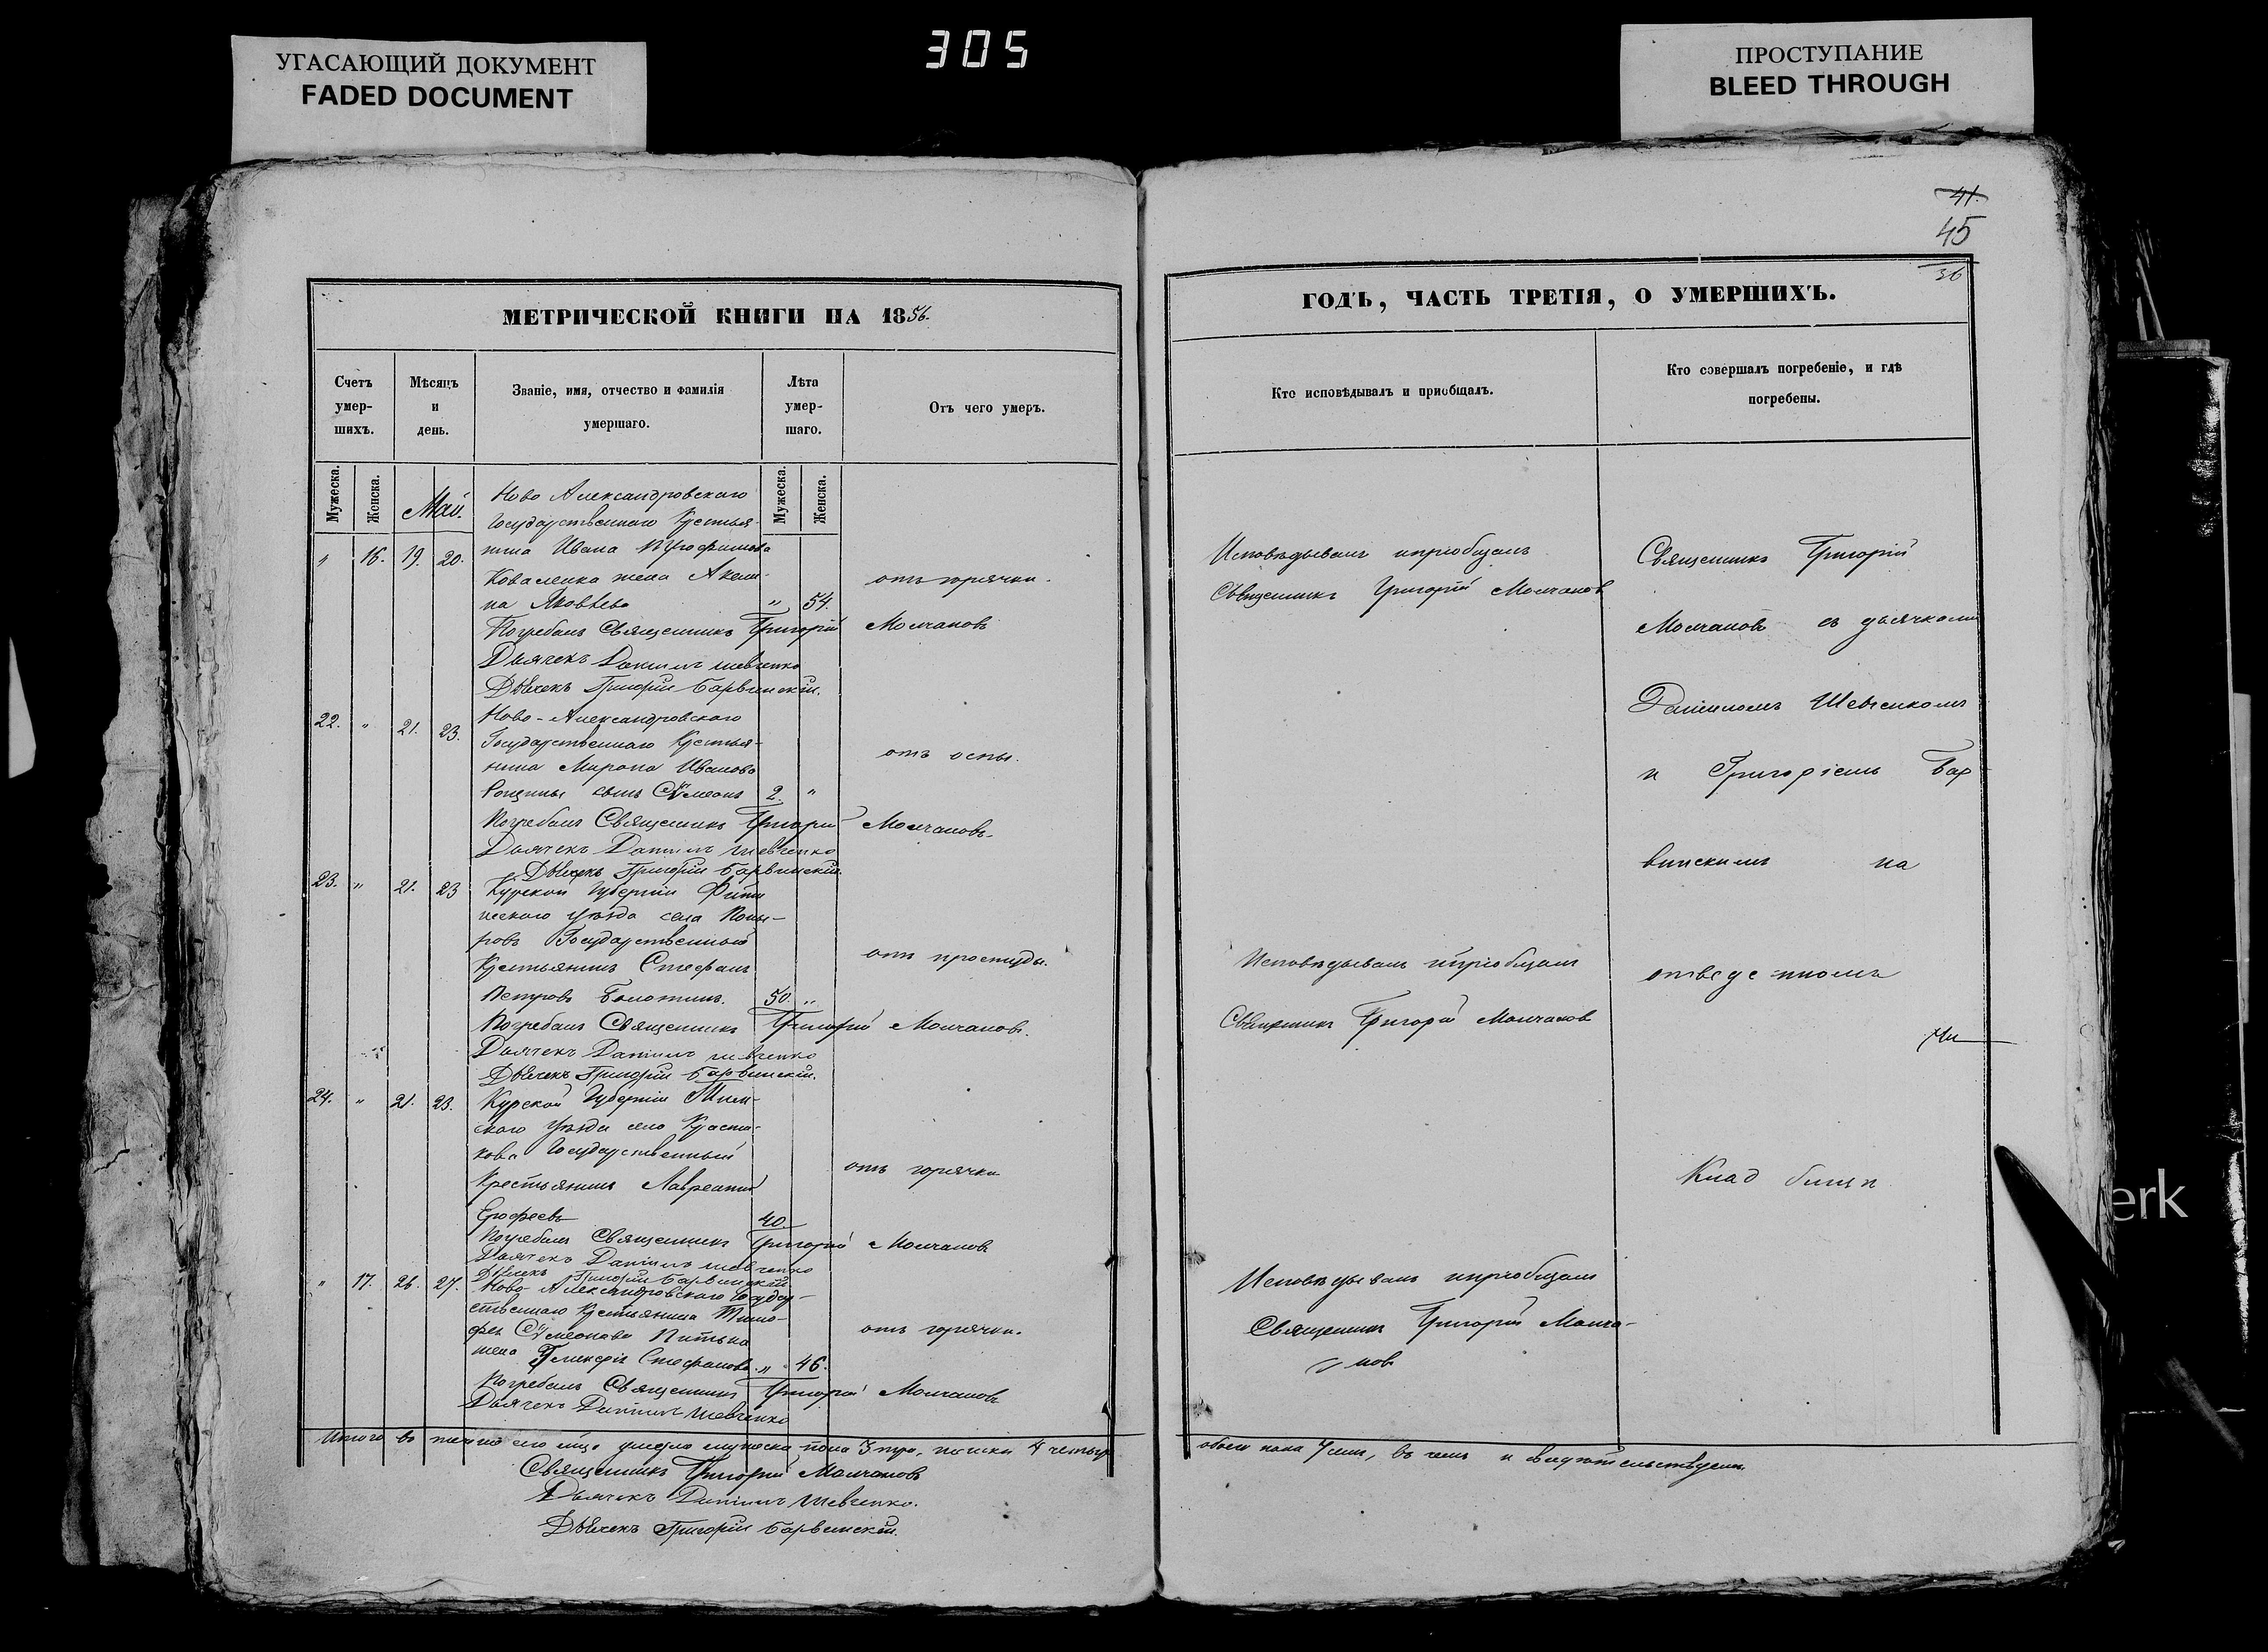 305
УГАСАЮЩИЙ ДОКУМЕНТ
FADED DOCUMENT
ПРОСТУПАНИЕ
BLEED THROUGH
41.
45
36
МЕТРИЧЕСКОЙ КНИГИ НА 1856.
Счетъ умер-шихъ.
Мѣсяцъ и день.
Званіе, имя, отчество и фамилія умершаго.
Лѣта умер-шаго.
Отъ чего умеръ.
Мужеска.
Женска.
Май.
Мужеска.
Женска.
Ново Александровскаго
Государственнаго Крестья-
" 16. 19. 20. нина Ивана Трофимова
Коваленка жена Акели-
отъ горячки.
на Яковлева " 54.
Погребалъ Священникъ Григорій Молчановъ
Дьячекъ Даніилъ Шевченко
Дьячекъ Григорій Барвинскій.
22. " 21. 23. Ново-Александровскаго
Государственнаго Крестья-
отъ оспы.
нина Мирона Иванова
сынъ Сѵмеонъ 2. "
Погребалъ Священникъ Григорій Молчановъ.
Дьячекъ Даніилъ Шевченко
Дьячекъ Григорій Барвинскій.
23. " 21. 23 Курской Губерніи
уѣзда села
Государственный
отъ простуды.
Крестьянинъ Стефанъ
Петровъ Болотинъ. 50. "
Погребалъ Священникъ Григорій Молчановъ.
Дьячекъ Даніилъ Шевченко
Дьячекъ Григорій Барвинскій.
24. " 21. 23. Курской Губерніи Тим-
скаго уѣзда села
Государственный
отъ горячки
Крестьянинъ Лаврентій
Ерофеевъ 40.
Погребалъ Священникъ Григорій Молчановъ
Дьячекъ Даніилъ Шевченко
Дьячекъ Григорій Барвинскій.
" 17. 26. 27. Ново-Александровскаго Государ-
ственнаго Крестьянина Тимо-
фея Сѵмеонова
отъ горячки.
жена Гликерія Стефанова " 46.
Погребалъ Священникъ Григорій Молчановъ
Дьячекъ Даніилъ Шевченко
Итого въ умерло мужеска пола 3 три, женска 4 четыр
Священникъ Григорій Молчановъ
Дьячекъ Даніилъ Шевченко.
Дьячекъ Григорій Барвинскій.
ГОДЪ, ЧАСТЬ ТРЕТІЯ, О УМЕРШИХЪ.
Кто исповѣдывалъ и пріобщалъ.
Кто совершалъ погребеніе, и гдѣ погребены.
Исповѣдывалъ и пріобщалъ
Священникъ Григорій Молчановъ
Исповѣдывалъ и пріобщалъ
Священникъ Григорій Молчановъ
Исповѣдывалъ и пріобщалъ
Священникъ Григорій Молча-
новъ
Священникъ Григорій
Молчановъ съ дьячками
Даніиломъ Шевченкомъ
и Григоріемъ Бар
винскимъ на
отведенномъ
Кладбищѣ
обоего пола 7 семь, въ чемъ и свидѣтельствуемъ.
erk